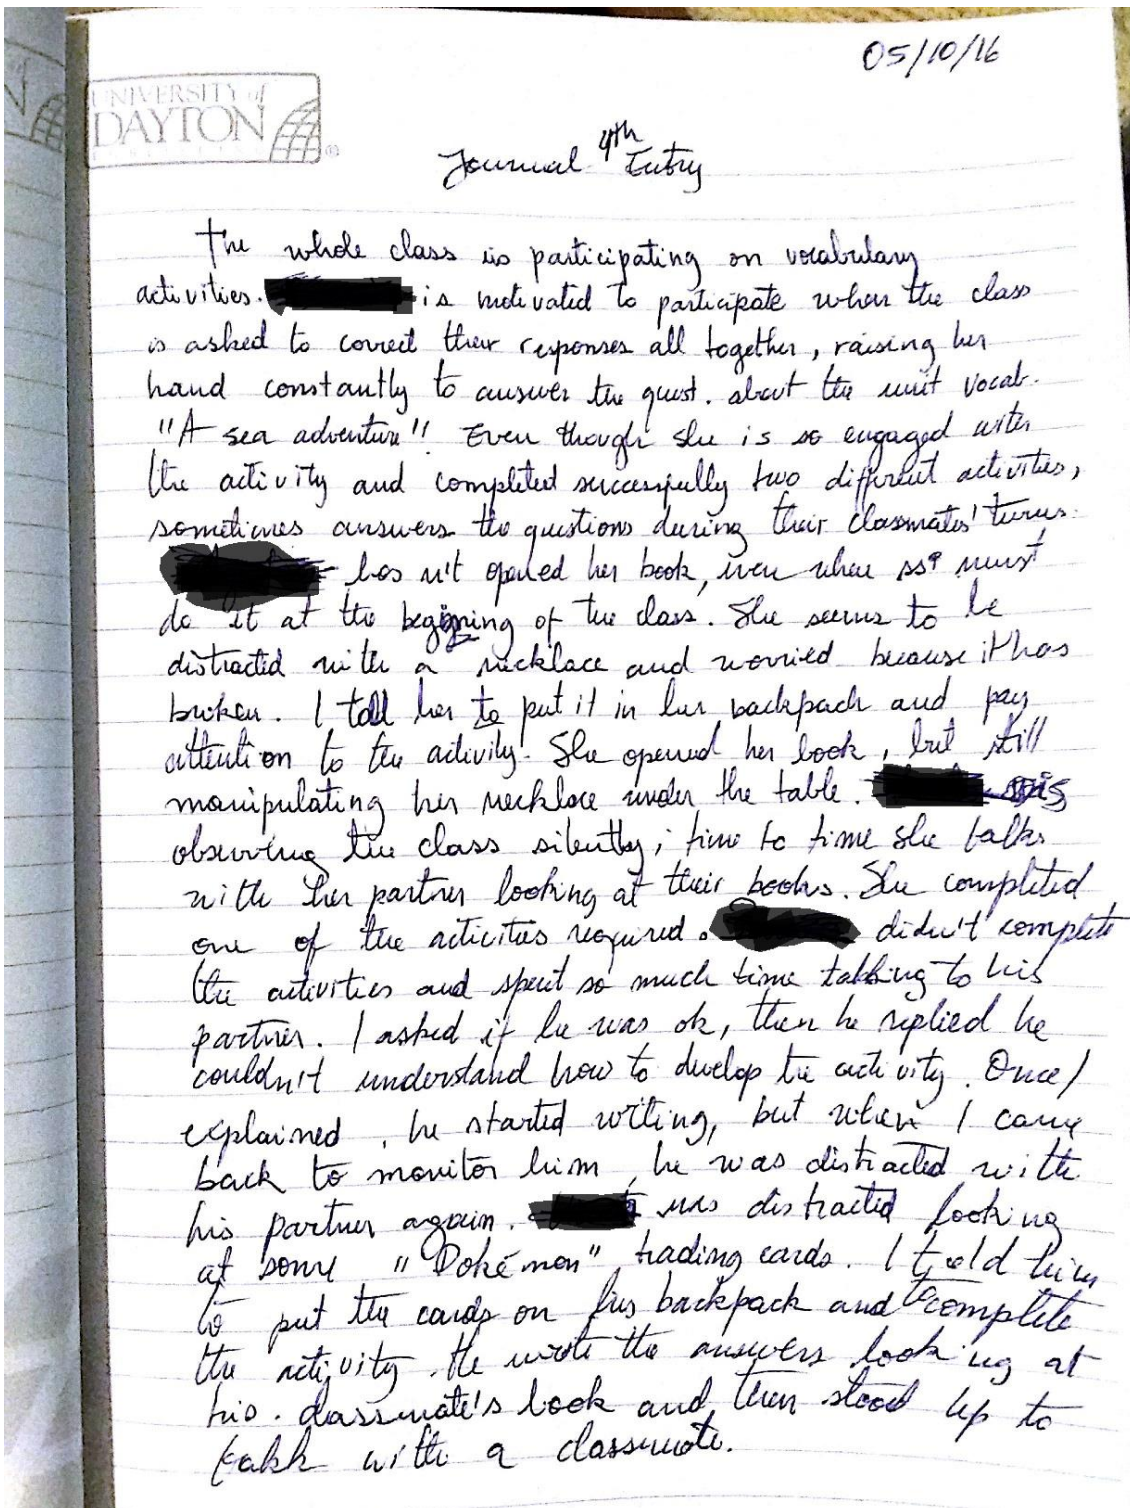 05/10/16
UNIVERSITY of
DAYTON
Journal 4th Entry
The whole class is participating on vocabulary
activities. is motivated to participate when the class
is asked to correct their responses all together, raising her
hand constantly to answer the quest. about the unit vocab.
"A sea adventure". Even though she is so engaged with
the activity and completed successfully two different activities,
sometimes answers the questions during their classmates' turns.
has n't opened her book, even when ss' must
do it at the beginning of the class. She seems to be
distracted with a necklace and worried because it has
broken. I told her to put it in her backpack and pay
attention to the activity. She opened her book, but still
manipulating her necklace under the table. is
observing the class silently; time to time she talks
with her partner looking at their books. She completed
one of the activities required. didn't complete
the activities and spent so much time talking to his
partner. I asked if he was ok, then he replied he
couldn't understand how to develop the activity. Once I
explained, he started writing, but when I came
back to monitor him, he was distracted with
his partner again. was distracted looking
at some "Pokémon" trading cards. I told him
to put the cards on his backpack and to complete
the activity. He wrote the answers looking at
his classmate's book and then stood up to
talk with a classmate.